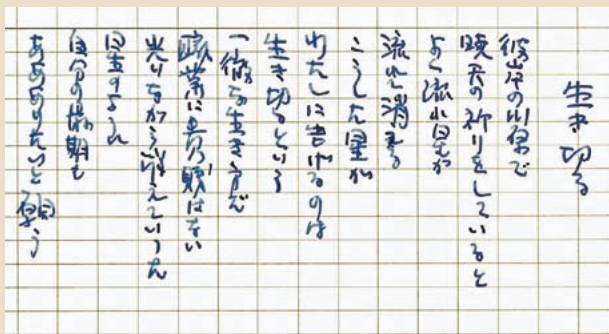 生き切る
彼岸の川原で
暁天の祈りをしていると
よく流れ星が
流れ消える
こうした星が
わたしに告げるのは
生き切るという
一徹な生き方だ
職業に貴賤はない
光りながら消えていった
星のように
自分の最期も
ああありたいと願う